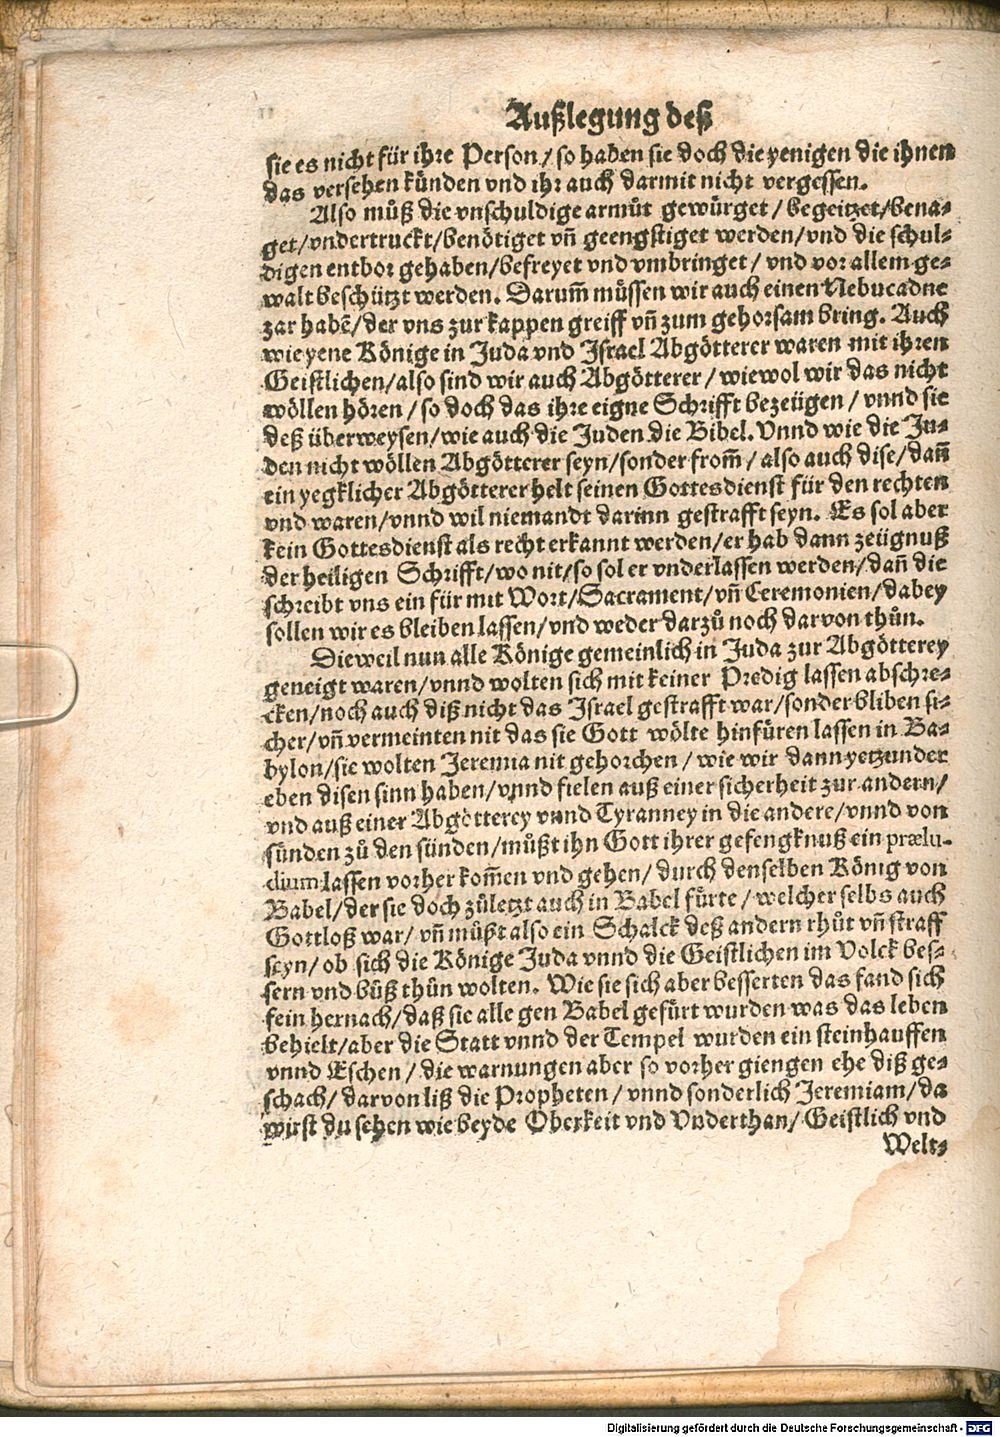 Außlegung deß
sie es nicht für ihre Person / so haben sie doch die yenigen die ihnen
das versehen künden vnd ihr auch darmit nicht vergessen.
Also müß die vnschuldige armůt gewürget / begeitzet/bena-
get/vndertruckt/benötiget vñ geengstiget werden/vnd die schul-
digen entbor gehaben/befreyet vnd vmbringet / vnd vor allem ge-
walt beschützt werden. Darum̃ müssen wir auch einen Nebucadne
zar habẽ/der vns zur kappen greiff vñ zum gehorsam bring. Auch
wie yene Könige in Juda vnd Israel Abgötterer waren mit ihren
Geistlichen/also sind wir auch Abgötterer / wiewol wir das nicht
wöllen hören / so doch das ihre eigne Schrifft bezeügen / vnnd sie
deß überweysen/wie auch die Juden die Bibel. Vnnd wie die Ju-
den nicht wöllen Abgötterer seyn/sonder from̃ / also auch dise/dañ
ein yegklicher Abgötterer helt seinen Gottesdienst für den rechten
vnd waren/vnnd wil niemandt darinn gestrafft seyn. Es sol aber
kein Gottesdienst als recht erkannt werden/er hab dann zeügnuß
der heiligen Schrifft/wo nit/so sol er vnderlassen werden/dañ die
schreibt vns ein für mit Wort/Sacrament/vñ Ceremonien/dabey
sollen wir es bleiben lassen/vnd weder darzů noch darvon thůn.
Dieweil nun alle Könige gemeinlich in Juda zur Abgötterey
geneigt waren/vnnd wolten sich mit keiner Predig lassen abschre-
cken/noch auch diß nicht das Israel gestrafft war/sonder bliben si-
cher/vñ vermeinten nit das sie Gott wölte hinfüren lassen in Ba-
bylon/sie wolten Jeremia nit gehorchen / wie wir dann yetzunder
eben disen sinn haben/vnnd fielen auß einer sicherheit zur andern/
vnd auß einer Abgötterey vnnd Tyranney in die andere/vnnd von
sünden zů den sünden/müßt ihn Gott ihrer gefengknuß ein prælu-
dium lassen vorher kom̃en vnd gehen/ durch denselben König von
Babel/der sie doch zůletzt auch in Babel fürte / welcher selbs auch
Gottloß war/ vñ müßt also ein Schalck deß andern rhůt vñ straff
seyn/ ob sich die Könige Juda vnnd die Geistlichen im Volck bes-
sern vnd bůß thůn wolten. Wie sie sich aber besserten das fand sich
fein hernach/daß sie alle gen Babel gefürt wurden was das leben
behielt/aber die Statt vnnd der Tempel wurden ein steinhauffen
vnnd Eschen / die warnungen aber so vorher giengen ehe diß ge-
schach/ darvon liß die Propheten / vnnd sonderlich Jeremiam/da
wirst du sehen wie beyde Oberkeit vnd Vnderthan/ Geistlich vnd
Welt-
Digitalisierung gefördert durch die Deutsche Forschungsgemeinschaft - DFG